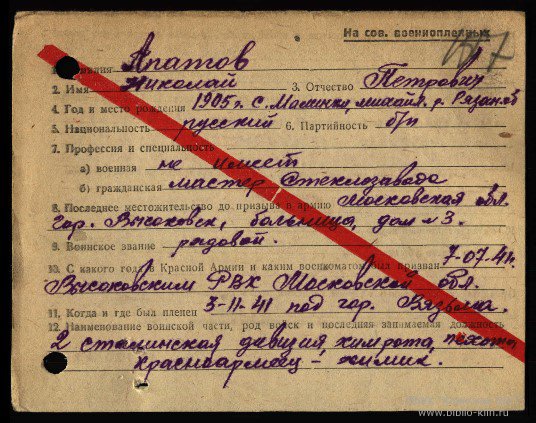 На сов. военнопленных
1. Фамилия Апатов
2. Имя Николай 3. Отчество Петрович
4. Год и место рождения 1905 г. с. Михайл. р. Рязан. об
5. Национальность русский 6. Партийность б/п
7. Профессия и специальность
а) военная не имеет
б) гражданская мастер Стеклозавода
8. Последнее местожительство до призыва в армию Московская обл.
гор. Высоковск, больница, дом №3.
9. Воинское звание рядовой.
10. С какого года в Красной Армии и каким военкоматом был призван 7-07-41г.
Высоковским РВК Московской обл.
11. Когда и где был пленен 3-11-41 под гор. Вязьма.
12. Наименование воинской части, род войск и последняя занимаемая должность
2 сталинская дивизия, химрота, пехота,
красноармеец - химик.
www.biblio-klin.ru